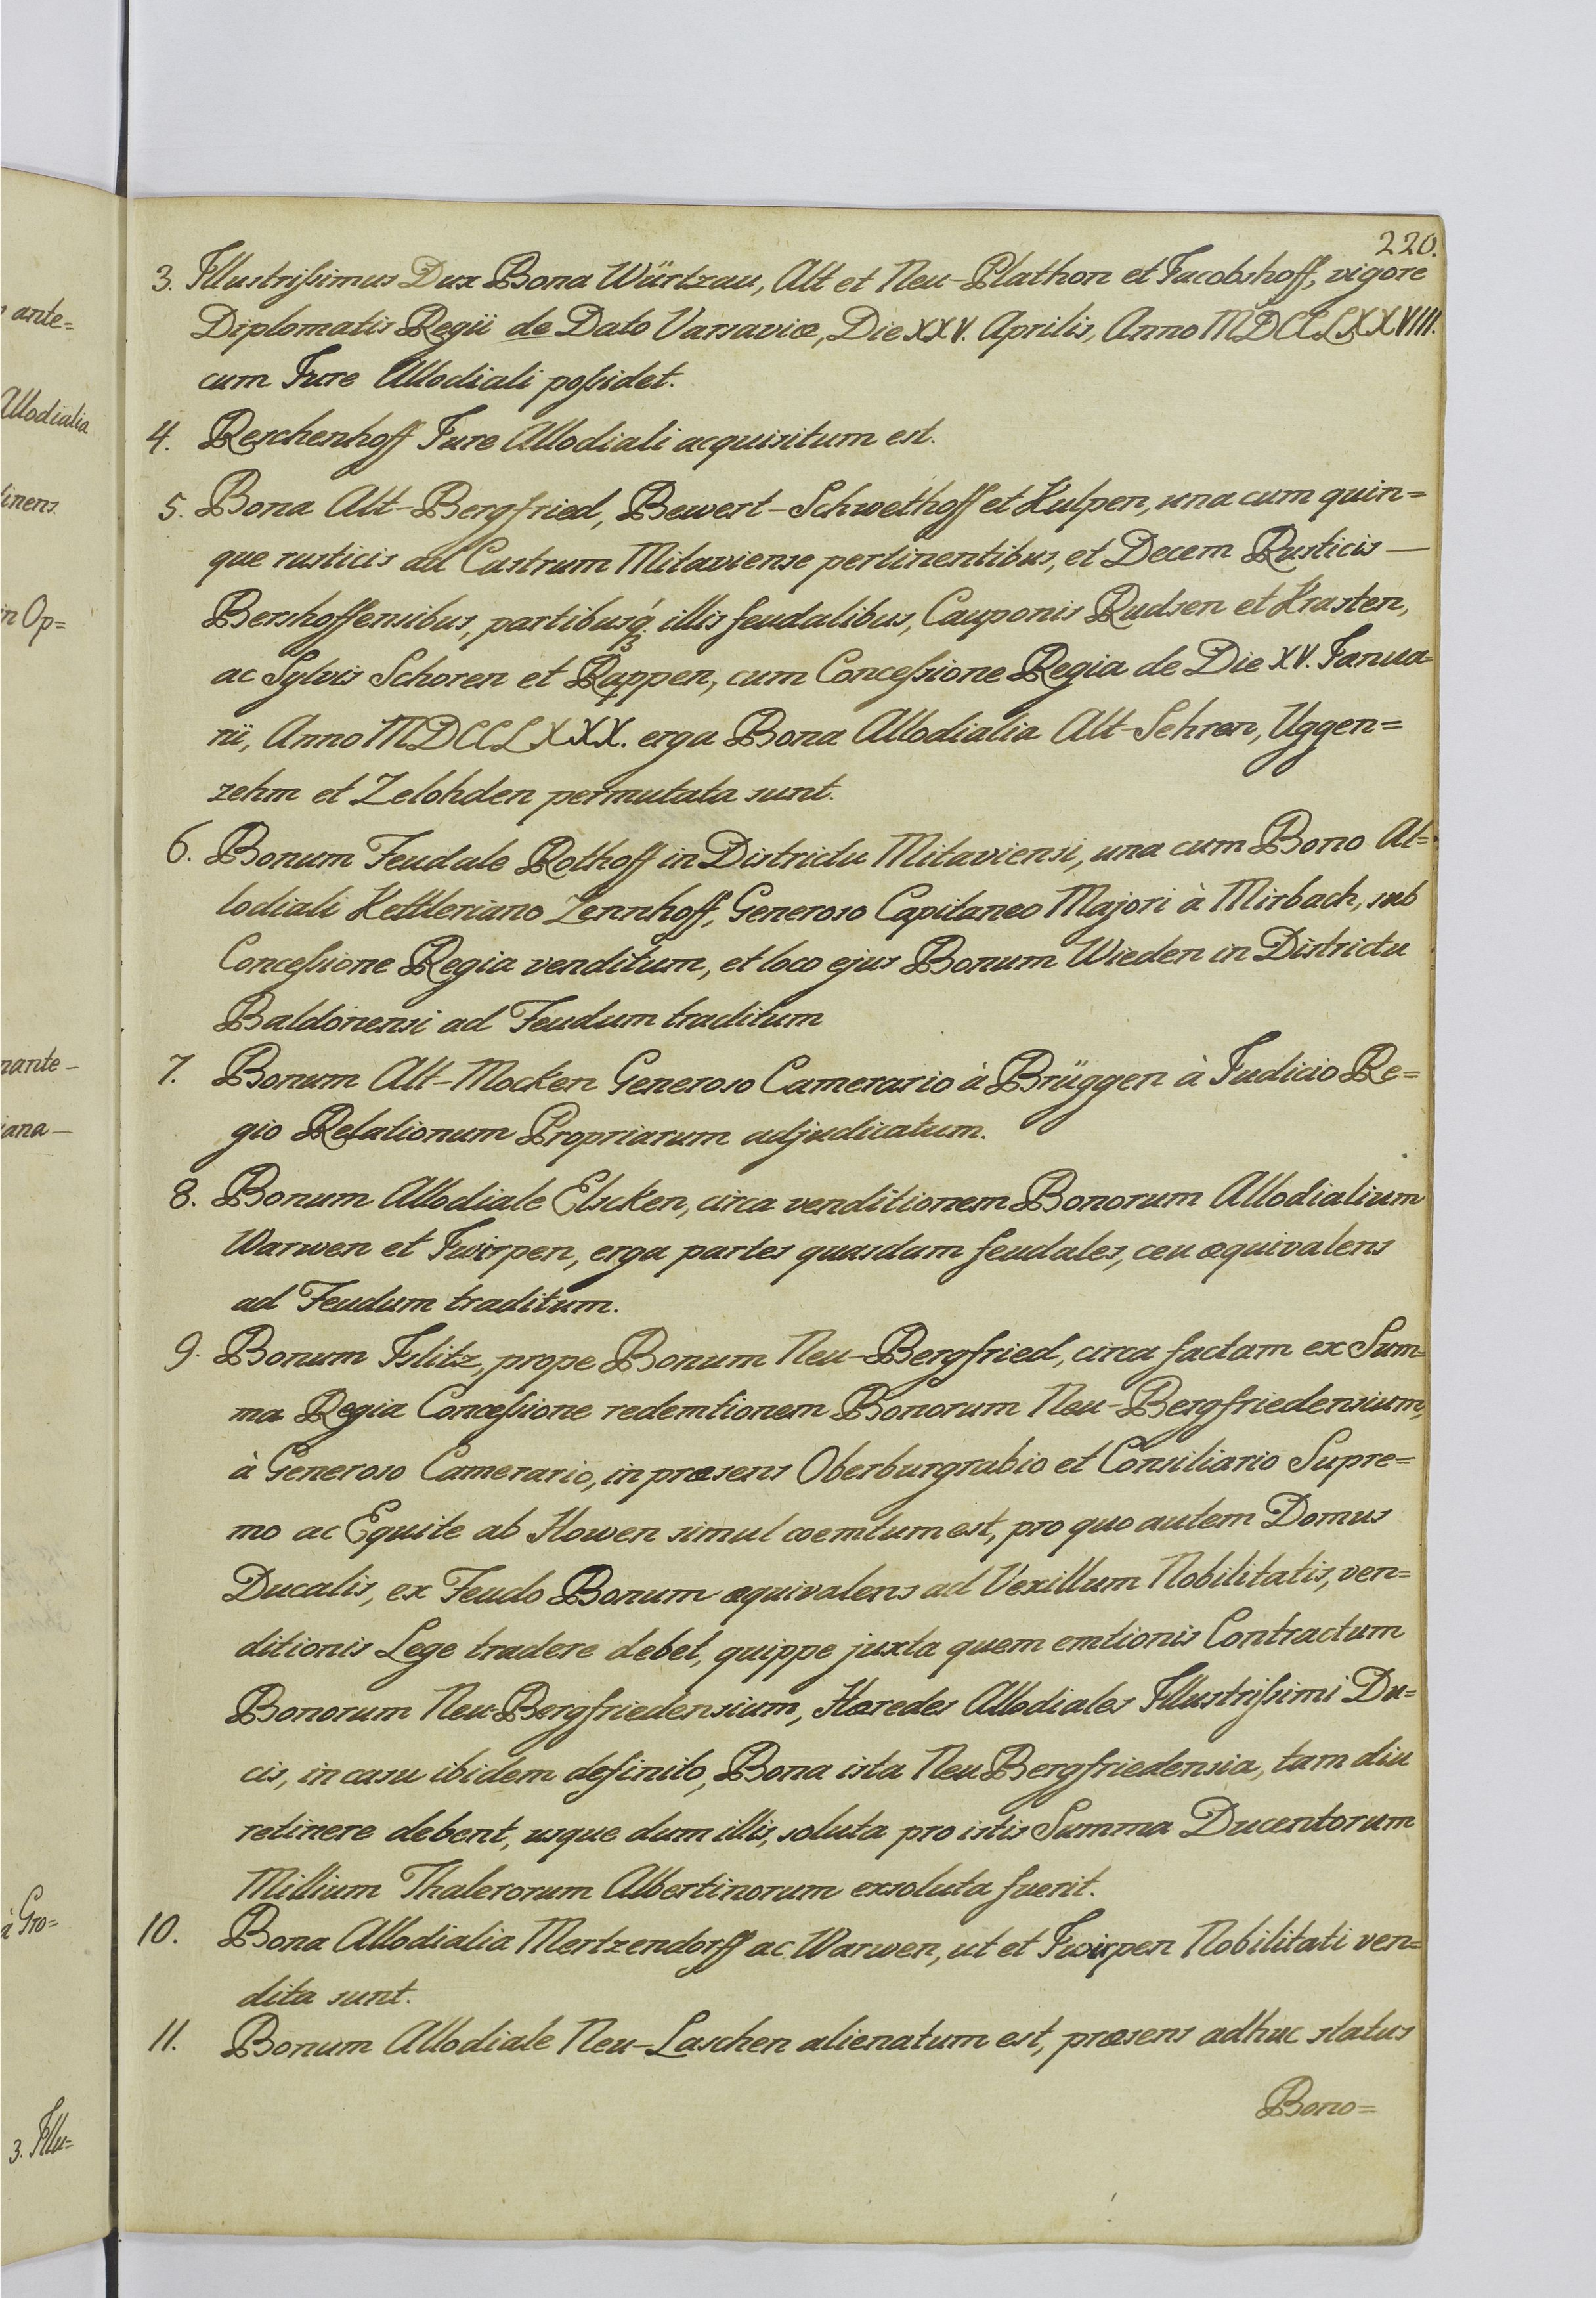 ante=
Allodialia
tinens.
in Op=
nante-
iana-
à Gro=
3. Illu=
220.
3. Illustrissimus Dux Bona Würtzau, Alt et Neu-Plathon et Jacobshoff, vigore
Diplomatis Regii de Dato Varsaviæ, Die XXV. Aprilis, Anno MDCCLXXVIII.
cum Jure Allodiali possidet.
4. Reschenhoff Jure Allodiali acquisitum est.
5. Bona Alt-Bergfried, Bewert-Schwethoff et Kulpen, una cum quin=
que rusticis ad Castrum Mitaviense pertinentibus, et Decem Rusticis —
Bershoffensibus, partibusq́; illis feudalibus, Cauponis Rudsen et Krasten,
ac Sylvis Schoren et Ruppen, cum Concessione Regia de Die XV. Janua=
rii, Anno MDCCLXXX. erga Bona Allodialia Alt-Sehren, Uggen=
zehm et Zelohden permutata sunt.
6. Bonum Feudale Rothoff in Districtu Mitaviensi, una cum Bono Al=
lodiali Kettleriano Zennhoff, Generoso Capitaneo Majori à Mirbach, sub
Concessione Regia venditum, et loco ejus Bonum Wieden in Districtu
Baldonensi ad Feudum traditum
7. Bonum Alt-Mocken Generoso Camerario à Brüggen à Judicio Re=
gio Relationum Propriarum adjudicatum.
8. Bonum Allodiale Elscken, circa venditionem Bonorum Allodialium
Warwen et Jwirpen, erga partes quasdam feudales, ceu æquivalens
ad Feudum traditum.
9. Bonum Islitz, prope Bonum Neu-Bergfried, circa factam ex Sum=
ma Regia Concessione redemtionem Bonorum Neu-Bergfriedensium,
à Generoso Camerario, in præsens Oberburgrabio et Consiliario Supre=
mo ac Equite ab Howen simul coemtum est, pro quo autem Domus
Ducalis, ex Feudo Bonum æquivalens ad Vexillum Nobilitatis, ven=
ditionis Lege tradere debet, quippe juxta quem emtionis Contractum
Bonorum Neu-Bergfriedensium, Hæredes Allodiales Illustrissimi Du=
cis, in casu ibidem definito, Bona ista Neu Bergfriedensia, tam diu
retinere debent, usque dum illis, soluta pro istis Summa Ducentorum
Millium Thalerorum Albertinorum exsoluta fuerit.
10. Bona Allodialia Mertzendorff ac Warwen, ut et Jwirpen Nobilitati ven=
dita sunt.
11. Bonum Allodiale Neu-Laschen alienatum est, præsens adhuc status
Bono=